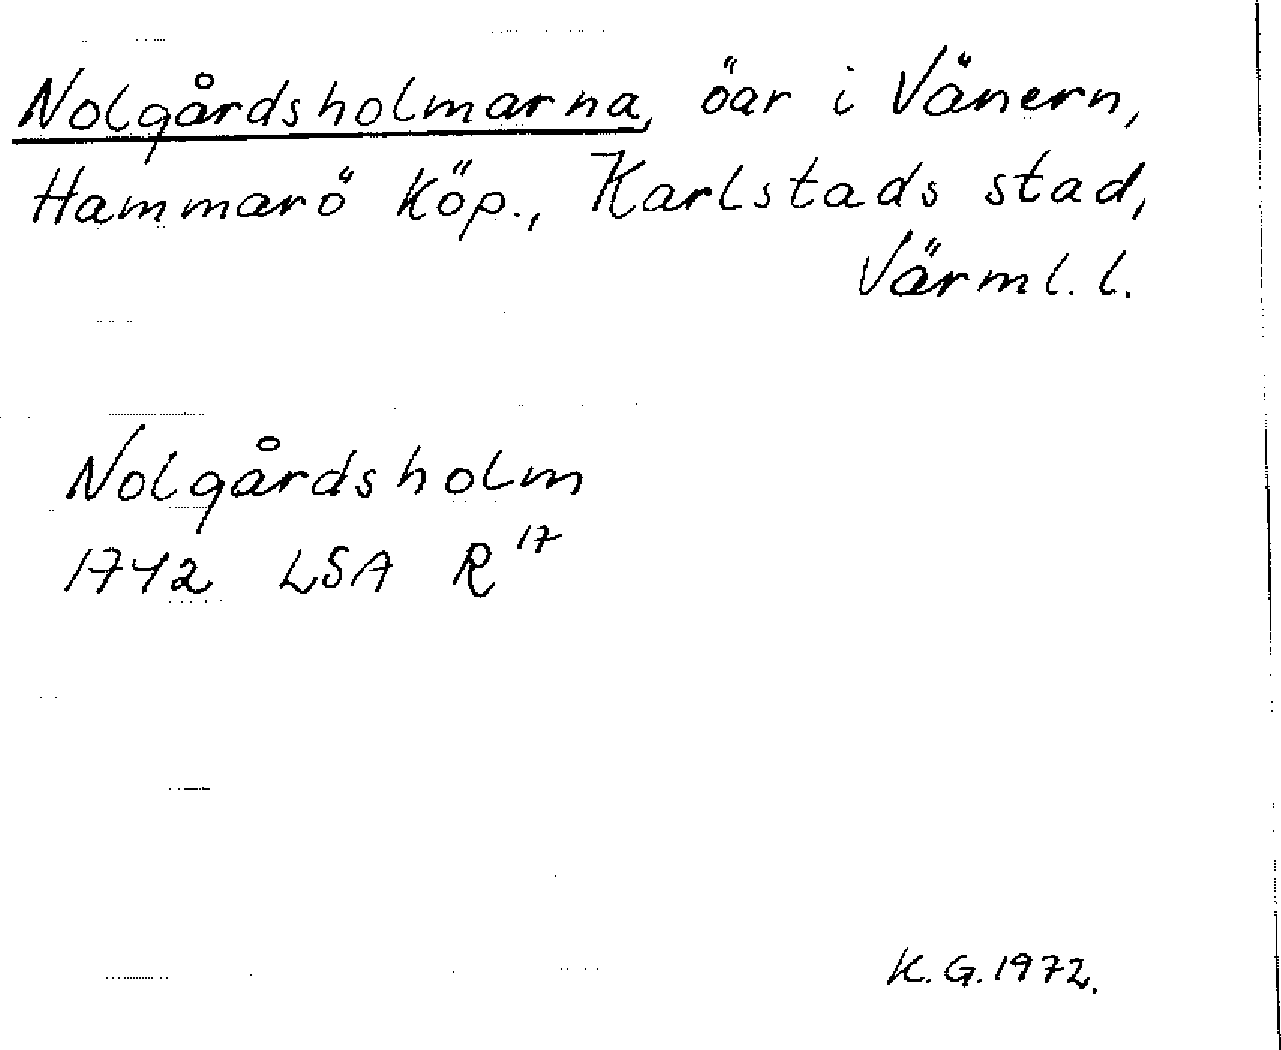 Nolgårdsholmarna, öar i Vänern,
Hammarö köp., Karlstads stad,
Värml. l.
Nolgårdsholm
1742 LSA R 17
K. G. 1972.